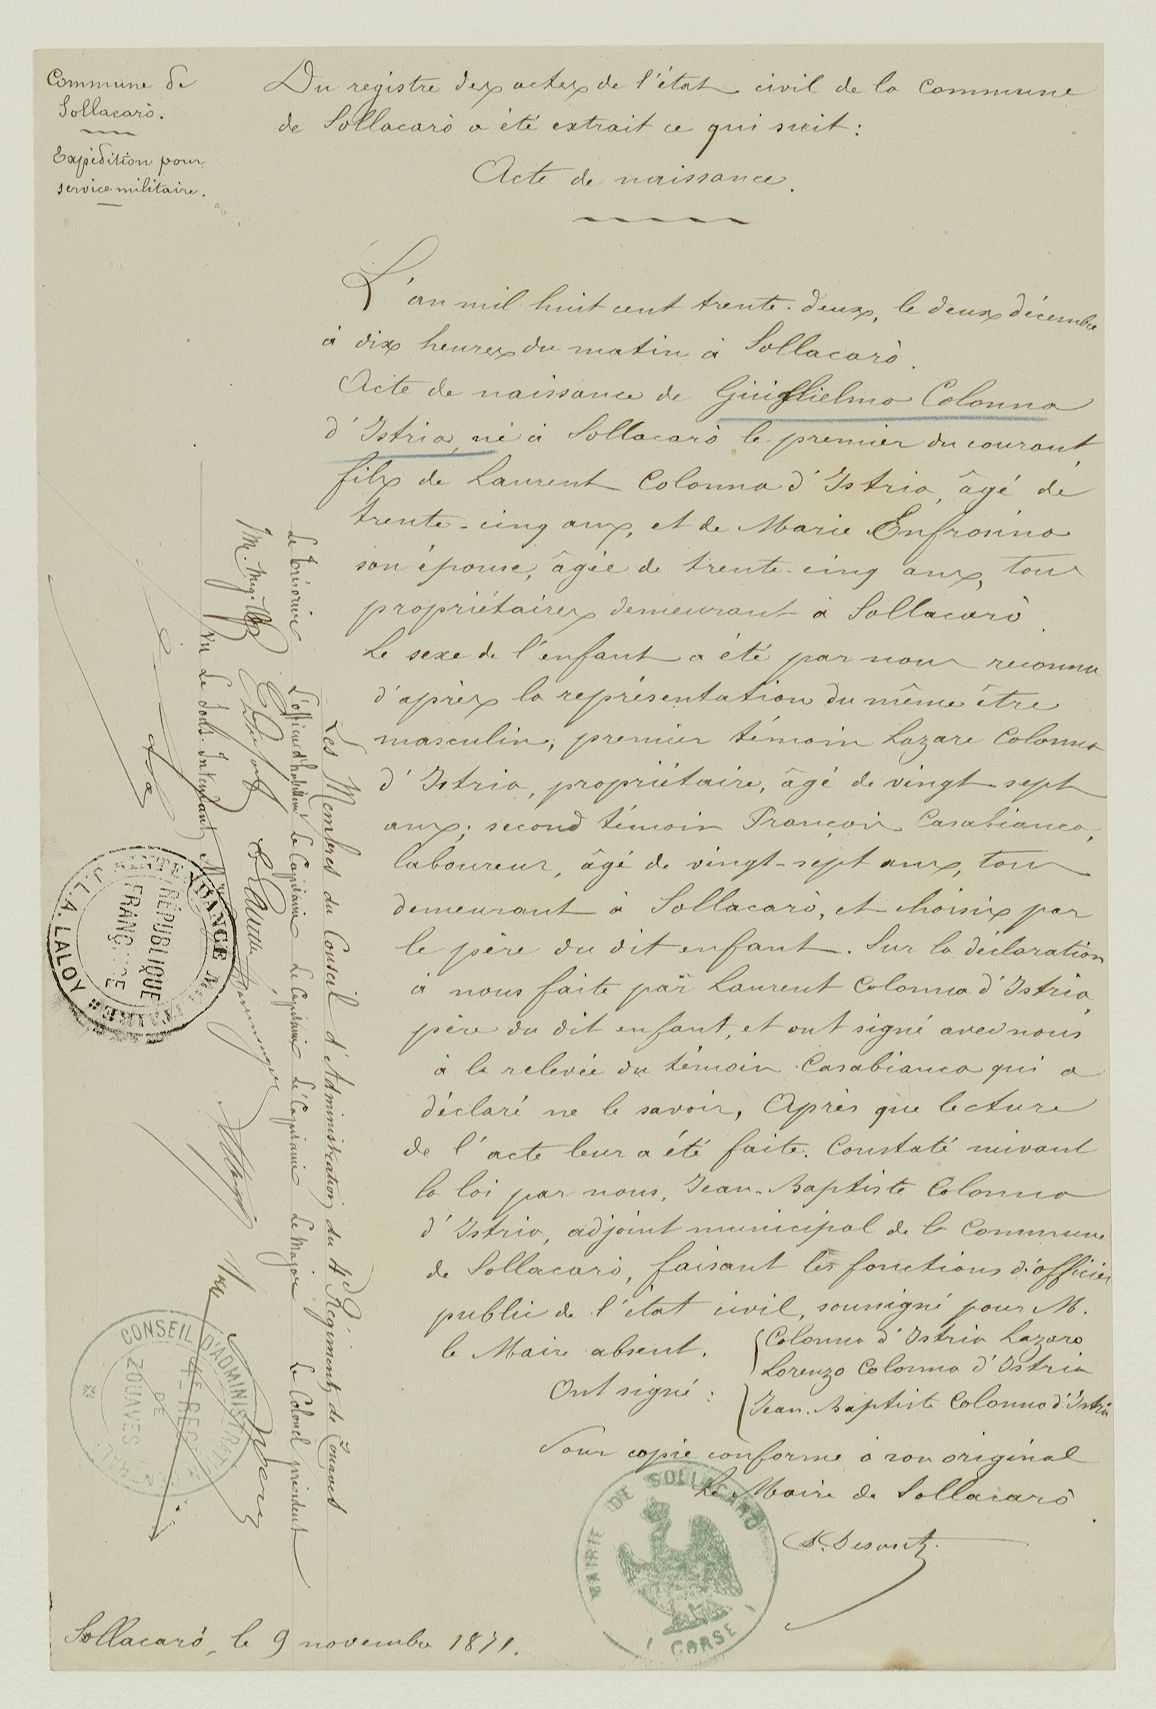 Commune de
Sollacarò.
Expédition pour
service militaire.
Du registre des actes de l'état civil de la Commune
de Sollacarò a été extrait ce qui suit :
Acte de naissance.
L'an mil huit cent trente-deux, le deux décembre
à dix heures du matin à Sollacarò.
Acte de naissance de Guiglielmo Colonna
d'Istria, né à Sollacarò le premier du courant,
fils de Laurent Colonna d'Istria, âgé de
trente-cinq ans, et de Marie Enfrosina
son épouse, âgée de trente-cinq ans, tous
propriétaires demeurant à Sollacarò
Le sexe de l'enfant a été par nous reconnu
d'après la représentation du même être
masculin; premier témoin Lazare Colonna
d'Istria, propriétaire, âgé de vingt sept
ans; second témoin François Casabianca,
laboureur, âgé de vingt-sept ans, tous
demeurant à Sollacarò, et choisis par
le père du dit enfant. Sur la déclaration
à nous faite par Laurent Colonna d'Istria
père du dit enfant, et ont signé avec nous
à la relevée du témoin Casabianca qui a
déclaré ne le savoir, Après que lecture
de l'acte leur a été faite. Constaté suivant
la loi par nous, Jean-Baptiste Colonna
d'Istria, adjoint municipal de la Commune
de Sollacarò, faisant les fonctions d'officier
public de l'état civil, soussigné pour M.
le Maire absent.
Ont signé :
Colonna d'Istria Lazaro
Lorenzo Colonna d'Istria
Jean-Baptiste Colonna d'Istria
Pour copie conforme à son original
Le Maire de Sollacarò
MAIRIE DE SOLLACARO
CORSE
Sollacarò, le 9 novembre 1871.
Les Membres du Conseil d'Administration du 4e Régiment de Zouaves
Le trésorier L'officier d'habillemt Le Capitaine Le Capitaine Le Capitaine Le Major Le Colonel président
Vu Le Sous Intendant Mre
RÉPUBLIQUE
FRANÇAISE
L.A. LALOY
CONSEIL D'ADMINISTRATION
4E REGT
DE
ZOUAVES